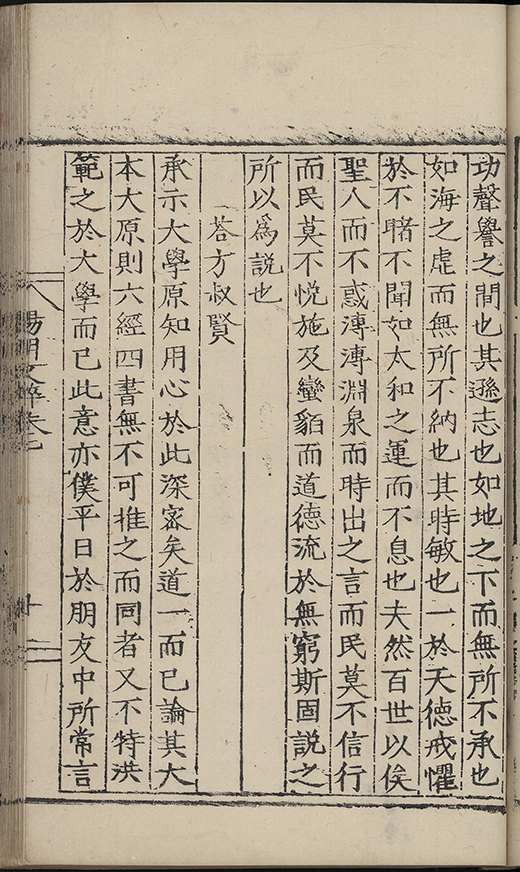 功聲譽之間也其遜志也如地之下而無所不承也
如海之虛而無所不納也其時敏也一於天德戒懼
於不睹不聞如太和之運而不息也夫然百世以俟
聖人而不惑溥溥淵泉而時出之言而民莫不信行
而民莫不悅施及蠻貊而道德流於無窮斯固說之
所以爲說也
荅方叔賢
承示大學原知用心於此深宻矣道一而已論其大
本大原則六經四書無不可推之而同者又不特洪
範之於大學而已此意亦僕平日於朋友中所常言
陽明文粹卷七
十二